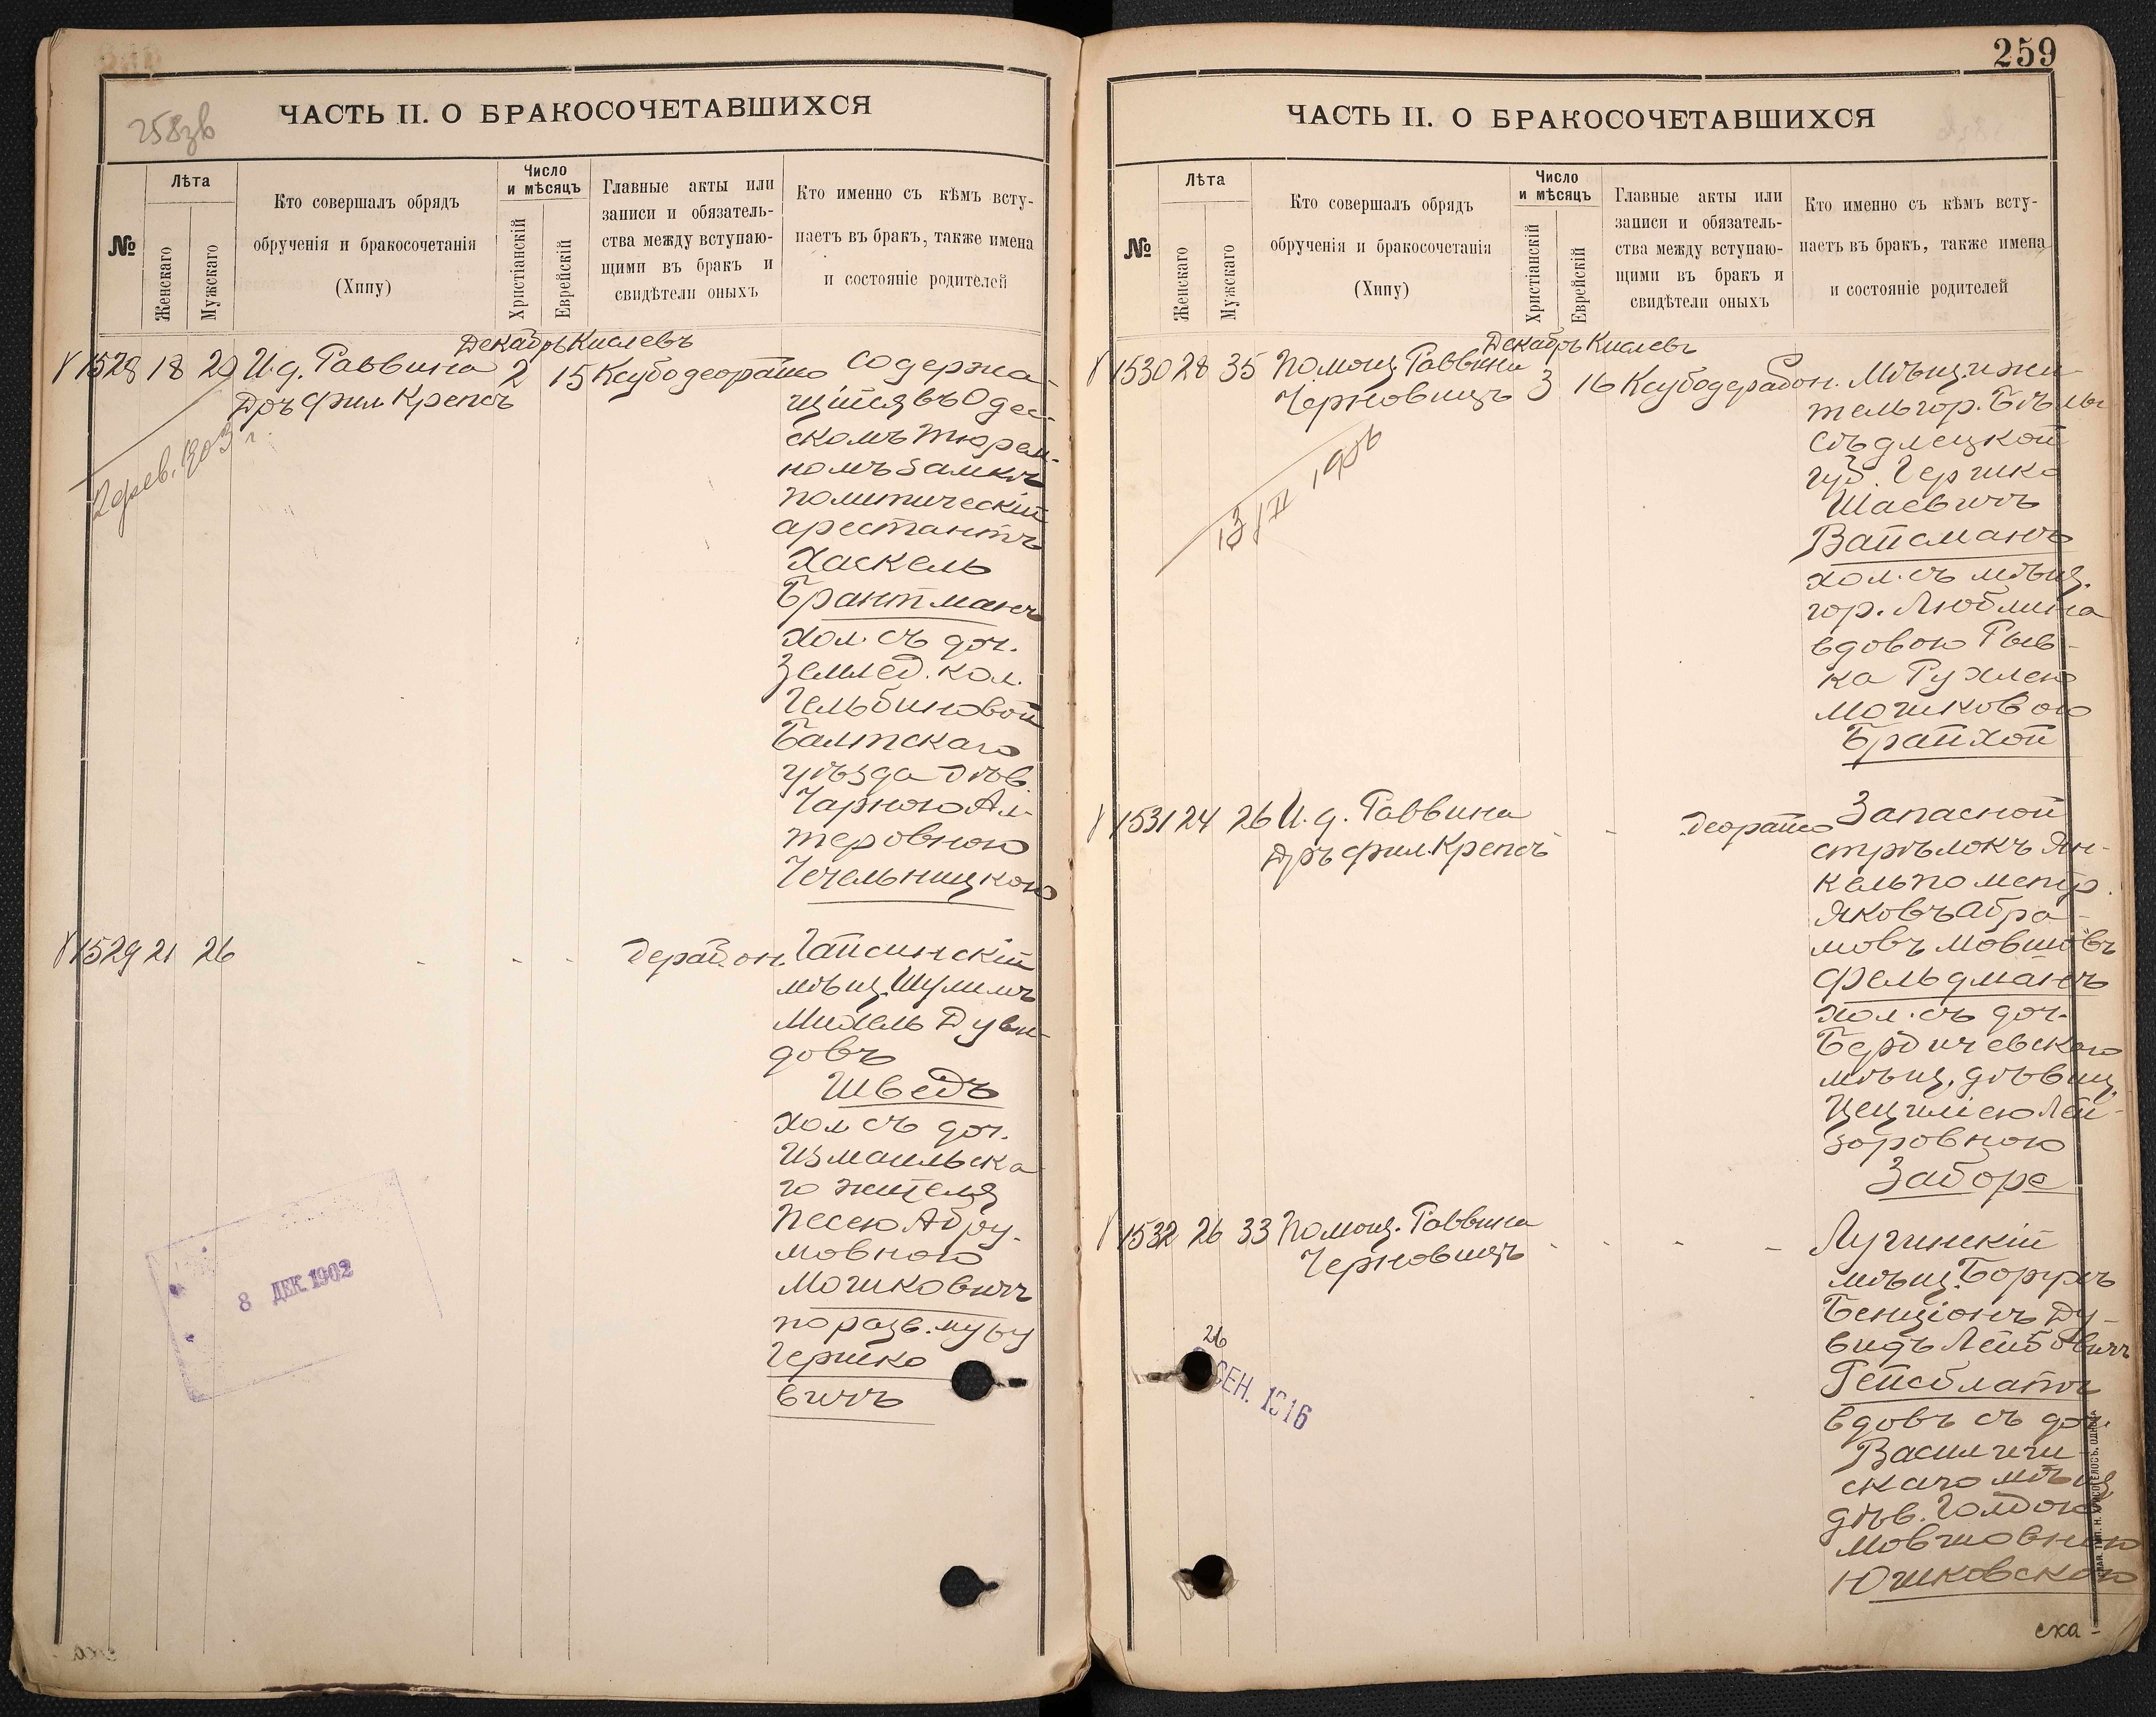 258зв
ЧАСТЬ II. О БРАКОСОЧЕТАВШИХСЯ
№
Лѣта
Женскаго
Мужскаго
Кто совершалъ обрядъ
обрученія и бракосочетанія
(Хипу)
Число
и мѣсяцъ
Христіанскій
Еврейскій
Главные акты или
записи и обязатель-
ства между вступаю-
щими въ бракъ и
свидѣтели оныхъ
Кто именно съ кѣмъ всту-
паетъ въ бракъ, также имена
и состояніе родителей
Декабрь Кислевъ
1528 18 20 И.д. Раввина 2 15 Ксубодеорайто Содержа-
Дръ Фил Крепсъ
щійся въ Одес-
скомъ тюрем-
номъ замкѣ
политическій
арестантъ
Хаскель
Брантманъ
хол. съ доч.
Землед. кол.
Гельбиновой
Балтскаго
уѣзда дѣв.
Чарною Ал-
теровною
Чечельницкою
2 фев. 1903 г.
1529 21 26 - - - Дерабон. Гайсинскій
мѣщ. Шулимъ
Михель Дуви-
довъ
Шведъ
хол съ доч.
Измаильска
го жителя
Песею Абру-
мовною
Мошковичъ
по разв. мужу
Гершко
вичъ
8 ДЕК. 1902
259
ЧАСТЬ II. О БРАКОСОЧЕТАВШИХСЯ
№
Лѣта
Женскаго
Мужскаго
Кто совершалъ обрядъ
обрученія и бракосочетанія
(Хипу)
Число
и мѣсяцъ
Христіанскій
Еврейскій
Главные акты или
записи и обязатель-
ства между вступаю-
щими въ бракъ и
свидѣтели оныхъ
Кто именно съ кѣмъ всту-
паетъ въ бракъ, также имена
и состояніе родителей
Декабрь Кислевъ
1530 28 35 Помощ. Раввина 3 16 Ксубодерабон. Мѣщ. и жи
Черновицъ
тель гор. Бѣлы
Сѣдлецкой
губ. Гершко
Шаевичъ
Вайсманъ
хол. съ мѣщ.
гор. Люблина
вдовою Рыв-
ка Рухлею
Мошковою
Брайхой
1531 24 26 И. д. Раввина - - Деорайсо Запасной
Дръ фил. Крепсъ
стрѣлокъ Ян-
кель по метр.
Яковъ Абра-
мовъ Мовшовъ
Фельдманъ
хол. съ доч.
Бердичевскаго
мѣщ. дѣвиц.
Цециліею Лей-
зоровною
Заборе
1532 26 33 Помощ. Раввина - - - - Лугинскій
Черновицъ
мѣщ. Борухъ
Бенціонъ Ду-
видъ Лейбовичъ
Гейсблатъ
вдовъ съ доч.
Василичи-
скаго мѣщ
дѣв. Голдою
Мовшовною
Юшковскою
26
СЕН. 1916
сха-